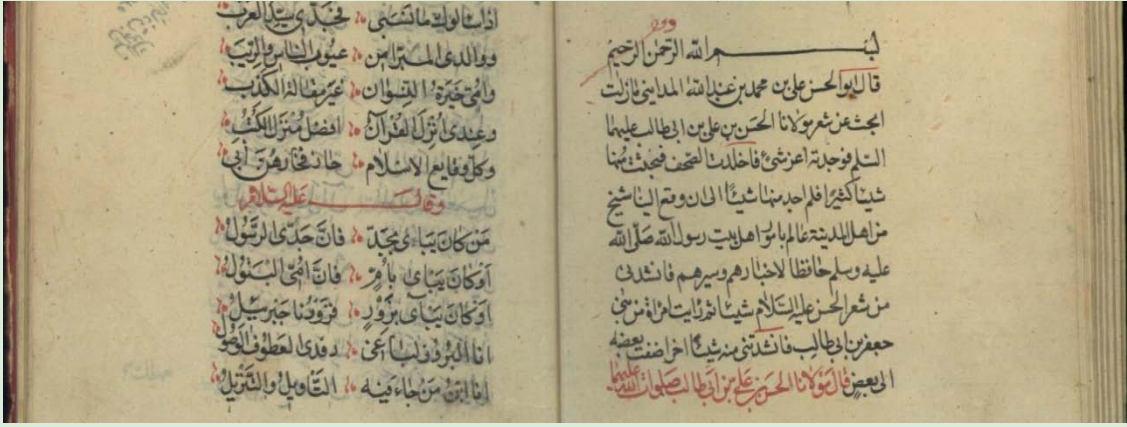 بسم الله الرحمن الرحيم
قال ابو الحسن علي بن محمد بن عبد الله المدايني مازلت
ابحث عن شعر مولانا الحسن بن علي بن ابي طالب عليهما
السلم فوجدته اعز شيء فاخلدت الصحف فبحثت منها
شيئا كثيرا فلم اجد منها شيئا الى ان وقع الينا شيخ
من اهل المدينة عالم بامور اهل بيت رسول الله صلى الله
عليه وسلم حافظا لاخبارهم وسيرهم فانشدني
من شعر الحسن عليه السلام شيئا ثم رايت امراة من بني
جعفر بن ابي طالب فانشدتني منه شيئا اخر اضفت بعضه
الى بعض قال مولانا الحسن بن علي بن ابي طالب صلوات الله عليهما
فجدي سيد العرب
ووالدي المبرا من عيوب الناس والريب
وامي خيرة النسوان غير مقالة الكذب
وعندي انزل القرآن افضل منزل الكتب
وكل وقايع الاسلام حاز فخارهن ابي
وقال عليه السلام
من كان يباءى بجد فان جدي الرسول
او كان يباءى بام فان امي البتول
او كان يباءى بزور فزورنا جبرييل
انا البروف لباغي رفدي العطوف الوصول
انا ابن من جاء فيه التاويل والتنزيل